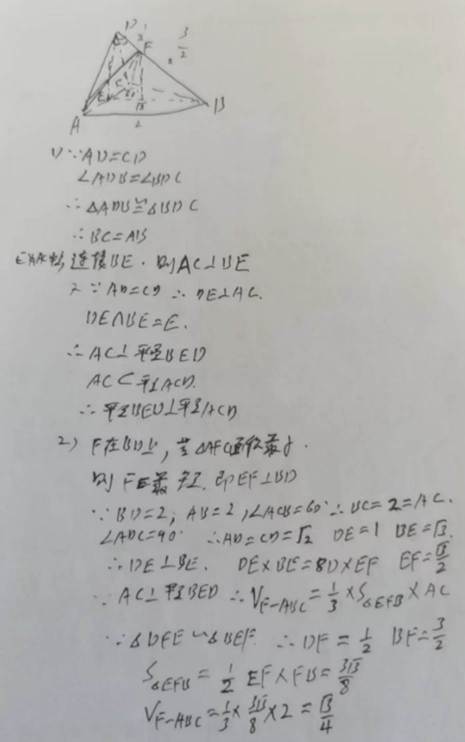 D
1/2
F
3/2
E
√3
A
2
B
1) ∵AD=CD
∠ADB=∠BDC
∴△ADB≌△BDC
∴BC=AB
E为AC中点, 连接BE. 则AC⊥BE
又∵AD=CD ∴DE⊥AC.
DE∩BE=E.
∴AC⊥平面BED
AC⊂平面ACD.
∴平面BED⊥平面ACD
2) F在BD上, 当△AFC面积最小.
则FE最短. 即EF⊥BD
∵BD=2, AB=2, ∠ACB=60° ∴BC=2=AC.
∠ADC=90° ∴AD=CD=√2 DE=1 BE=√3.
∴DE⊥BE. DE×BE=BD×EF EF=√3/2
∵AC⊥平面BED ∴V_{F-ABC}=1/3×S_{△EFB}×AC
∵△DFE∽△BEF. ∴DF=1/2 BF=3/2
S_{△EFB}=1/2 EF×FB=3√3/8
V_{F-ABC}=1/3×3√3/8×2=√3/4